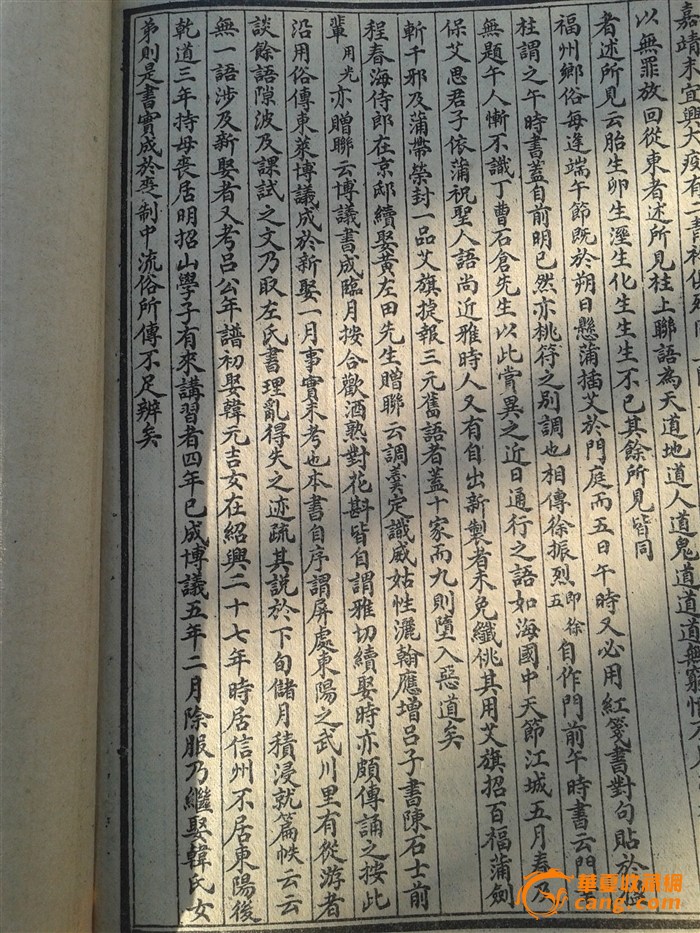 嘉靖末宜興大疫有
以無罪放回從東者述所見柱上聯語為天道地道人道鬼道道道無窮
者述所見云胎生卵生溼生化生生生不已其餘所見皆同
福州鄉俗每逢端午節既於朔日懸蒲插艾於門庭而五日午時又必用紅箋書對句貼於
柱謂之午時書蓋自前明已然亦桃符之別調也相傳徐振烈即徐五自作門前午時書云門
無題午人慚不識丁曹石倉先生以此賞異之近日通行之語如海國中天節江城五月春及
保艾思君子依蒲祝聖人語尚近雅時人又有自出新製者未免纖佻其用艾旗招百福蒲劍
斬千邪及蒲帶榮封一品艾旗捷報三元舊語者蓋十家而九則墮入惡道矣
程春海侍郎在京邸續娶黃左田先生贈聯云調羹定識威姑性灑翰應增呂子書陳石士前
輩用光亦贈聯云博議書成臨月按合歡酒熟對花斟皆自謂雅切續娶時亦頗傳誦之按此
沿用俗傳東萊博議成於新娶一月事實未考也本書自序謂屏處東陽之武川里有從游者
談餘語隙波及課試之文乃取左氏書理亂得失之迹疏其說於下旬儲月積浸就篇帙云云
無一語涉及新娶者又考呂公年譜初娶韓元吉女在紹興二十七年時居信州不居東陽後
乾道三年持母喪居明招山學子有來講習者四年已成博議五年二月除服乃繼娶韓氏女
弟則是書實成於憂制中流俗所傳不足辨矣
華夏收藏網
cang.com